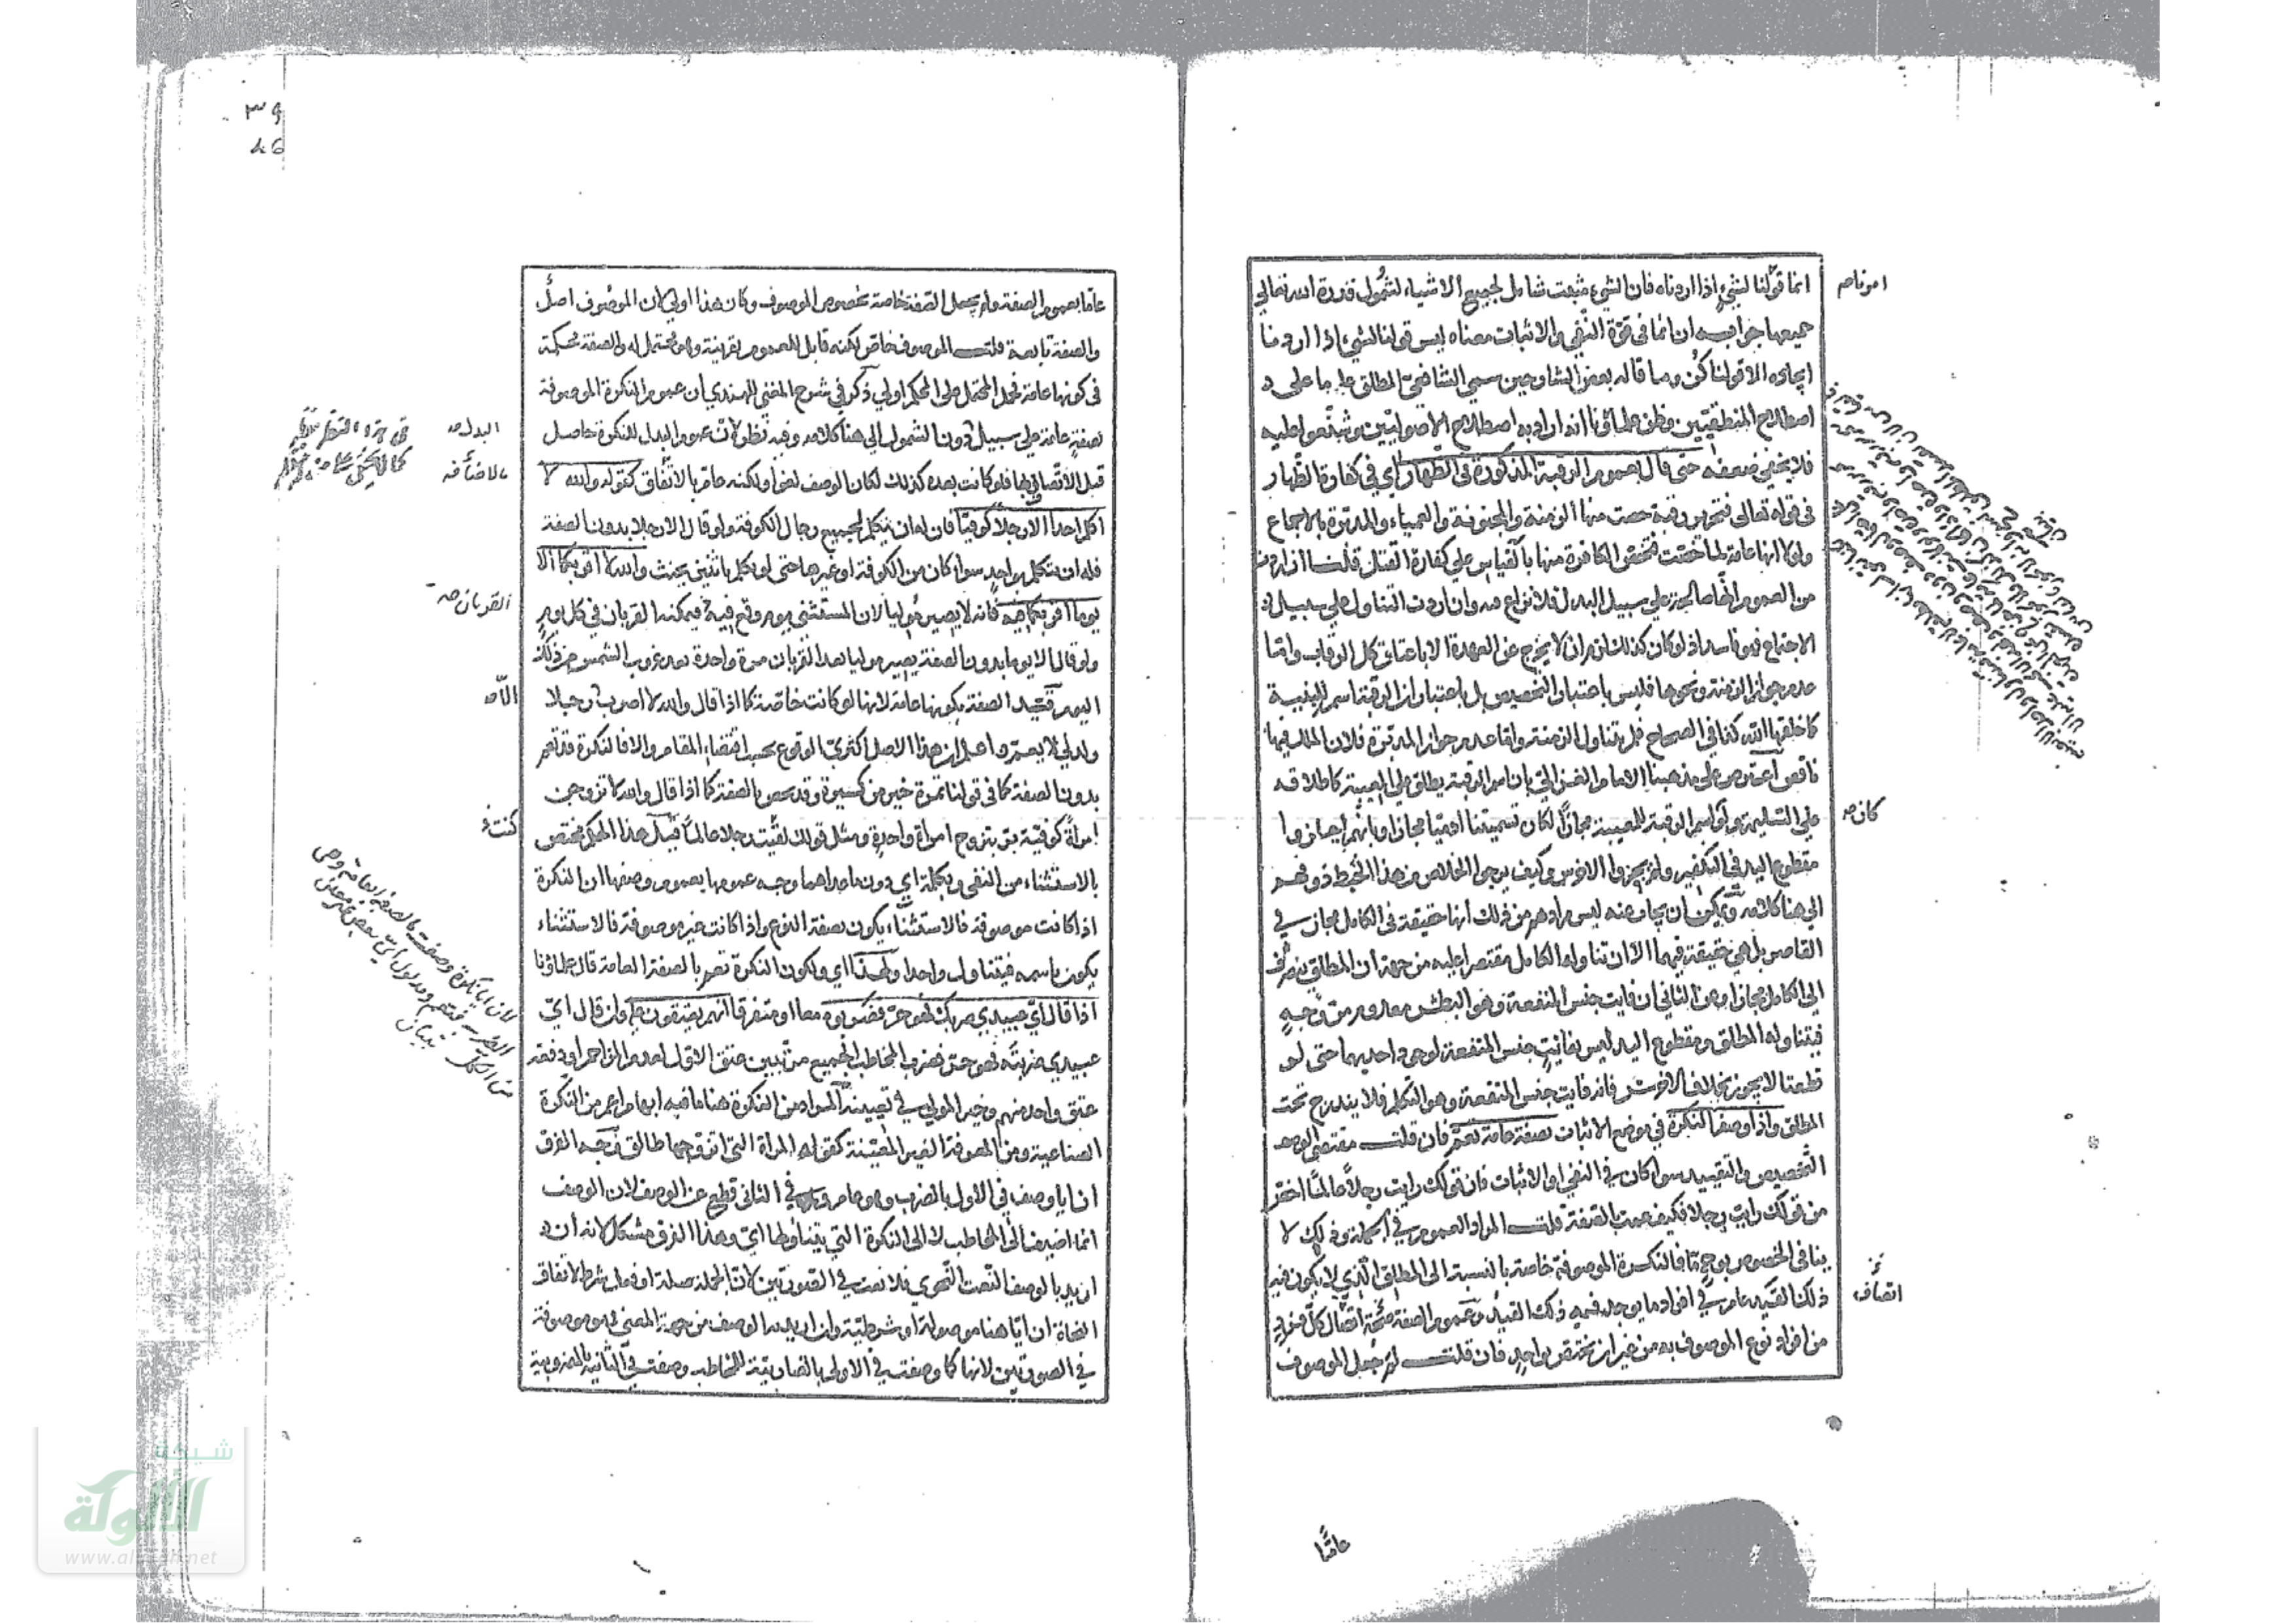 انما قولنا لشيء اذا اردناه فان الشيء مثبت شامل لجميع الاشياء لشمول قدرة الله تعالى
جميعها جوابه ان انما في قوة النفي والاثبات معناه ليس قولنا لشيء اذا اردنا
ايجاده الا قولنا كن وما قاله بعض الشارحين سمي الشافعي المطلق عاما على
اصطلاح المنطقيين وظن علماؤنا انه اراد به اصطلاح الاصوليين وشنعوا عليه
فلا يخفى ضعفه حتى قال بعموم الرقبة المذكورة في الظهار اي في كفارة الظهار
في قوله تعالى فتحرير رقبة خصت منها الزمنة والمجنونة والعمياء والمدبرة بالاجماع
ولولا انها عامة لما خصت فتخص الكافرة منها بالقياس على كفارة القتل قلنا ان اردت
من العموم الصالحة على سبيل البدل فلا نزاع فيه وان اردت التناول على سبيل
الاجتماع فهو فاسد اذ لو كان كذلك لزم ان لا يخرج عن العهدة الا باعتاق كل الرقاب واما
عدم جواز الزمنة ونحوها فليس باعتبار التخصيص بل باعتبار ان الرقبة اسم للبنية
كما خلقها الله كذا في الصحاح فلم يتناول الزمنة واما عدم جواز المدبرة فلان الملك فيها
ناقص اعترض على مذهبنا الامام الغزالي بان اسم الرقبة يطلق على المعيبة كاطلاقه
على السليمة ولو اسم الرقبة للمعيبة مجازا لكان تسميتنا ادميا مجازا وبانهم اجازوا
مقطوع اليد في التكفير ولم يجيزوا الاخرس وكيف يرجو الخلاص من هذا الخبط ذو فهم
الى هنا كلامه ويمكن ان يجاب عنه ليس مرادهم من ذلك انها حقيقة في الكامل مجاز في
القاصر بل هي حقيقة فيهما الا ان تناوله الكامل مقتصرا عليه من جهة ان المطلق ينصرف
الى الكامل مجازا وعن الثاني ان فايت جنس المنفعة وهو البطش معدوم من وجه
فيتناوله المطلق ومقطوع اليد ليس بفائت جنس المنفعة لوجود احديهما حتى لو
قطعتا لا يجوز بخلاف الاخرس فانه فايت جنس المنفعة وهو التكلم فلا يندرج تحت
المطلق واذا وصف النكرة في موضع الاثبات بصفة عامة تعم فان قلت مقتضى الوصف
التخصيص والتقييد سواء كان في النفي او الاثبات فان قولك رايت رجلا عالما اخص
من قولك رايت رجلا فكيف عمت بالصفة قلت المراد العموم في الجملة وذلك لا
ينافي الخصوص بوجه ما فالنكرة الموصوفة خاصة بالنسبة الى المطلق الذي لا يكون فيه
ذلك القيد عام في افراد ما يوجد فيه ذلك القيد وعموم الصفة صحة اتصال كل فرد
من افراد نوع الموصوف به من غير ان يختص بواحد فان قلت لم جعل الموصوف
امر ناص
كان صح
اتصاف
عاما
عاما بعموم الصفة ولم يجعل الصفة خاصة بخصوص الموصوف وكان هذا اولى لان الموصوف اصل
والصفة تابعة قلت الموصوف خاص لكنه قابل للعموم بقرينة وهو محتمل له والصفة محكمة
في كونها عامة فحمل المحتمل على المحكم اولى ذكر في شرح المغني للهندي ان عموم النكرة الموصوفة
بصفة عامة على سبيل دون الشمول الى هنا كلامه وفيه نظر لان عموم البدل للنكرة حاصل
قبل الاتصاف بها فلو كانت بعده كذلك لكان الوصف لغوا ولكنه عام بالاتفاق كقوله والله لا
اكلم احدا الا رجلا كوفيا فان له ان يتكلم بجميع رجال الكوفة ولو قال الا رجلا بدون الصفة
فله ان يتكلم بواحد سواء كان من الكوفة او غيرها حتى لو تكلم باثنين يحنث والله لا اقربكما الا
يوما اقربكما فيه فانه لا يصير موليا لان المستثنى يوم وقع فيه فيمكنه القربان في كل يوم
ولو قال الا يوما بدون الصفة يصير موليا بعد القربان مرة واحدة بعد غروب الشمس من ذلك
اليوم قيد الصفة بكونها عامة لانها لو كانت خاصة كما اذا قال والله لا اضرب رجلا
ولدني لا يعم واعلم ان هذا الاصل اكثري الوقوع بحسب اقتضاء المقام والا فالنكرة قد تعم
بدون الصفة كما في قولنا تمرة خير من كسيرة وقد تخص بالصفة كما اذا قال والله لاتزوجن
امراة كوفية يبر بتزوج امراة واحدة ومثل قولك لقيت رجلا عالما قيل هذا الحكم مختص
بالاستثناء من النفي وبكلمة اي دون ما عداهما وجه عمومها بعموم وصفها ان النكرة
اذا كانت موصوفة فالاستثناء يكون بصفة النوع واذا كانت غير موصوفة فالاستثناء
يكون باسمه فيتناول واحدا ولهذا اي ولكون النكرة تعم بالصفة العامة قال علماؤنا
اذا قال اي عبيدي ضربك فهو حر فضربوه معا او متفرقا انهم يعتقون وان قال اي
عبيدي ضربته فهو حر فضرب المخاطب الجميع مرتبين عتق الاول لعدم المزاحم او دفعة
عتق واحد منهم وخير المولى في تعيينه المراد من النكرة هنا ما فيه ابهام اعم من النكرة
الصناعية ومن المعرفة الغير المعينة كقوله المراة التي اتزوجها طالق وجه الفرق
ان ايا وصف في الاول بالضرب وهو عام وفي الثاني قطع عن الوصف لان الوصف
انما اضيف الى المخاطب لا الى النكرة التي يتناولها اي وهذا الفرق مشكل لانه ان
اريد بالوصف النعت النحوي فلا نعت في الصورتين لان الجملة صلة او فعل شرط لاتفاق
النحاة ان ايا هنا موصولة او شرطية وان اريد به الوصف من جهة المعنى فهو موصوفة
في الصورتين لانها كما وصفت في الاولى بالضاربية للمخاطب وصفت في الثانية بالمضروبية
البدل صح
بالاضافة
القربان صح
الا صح
كنت
٣٩
46
شبكة
الألوكة
www.alukah.net